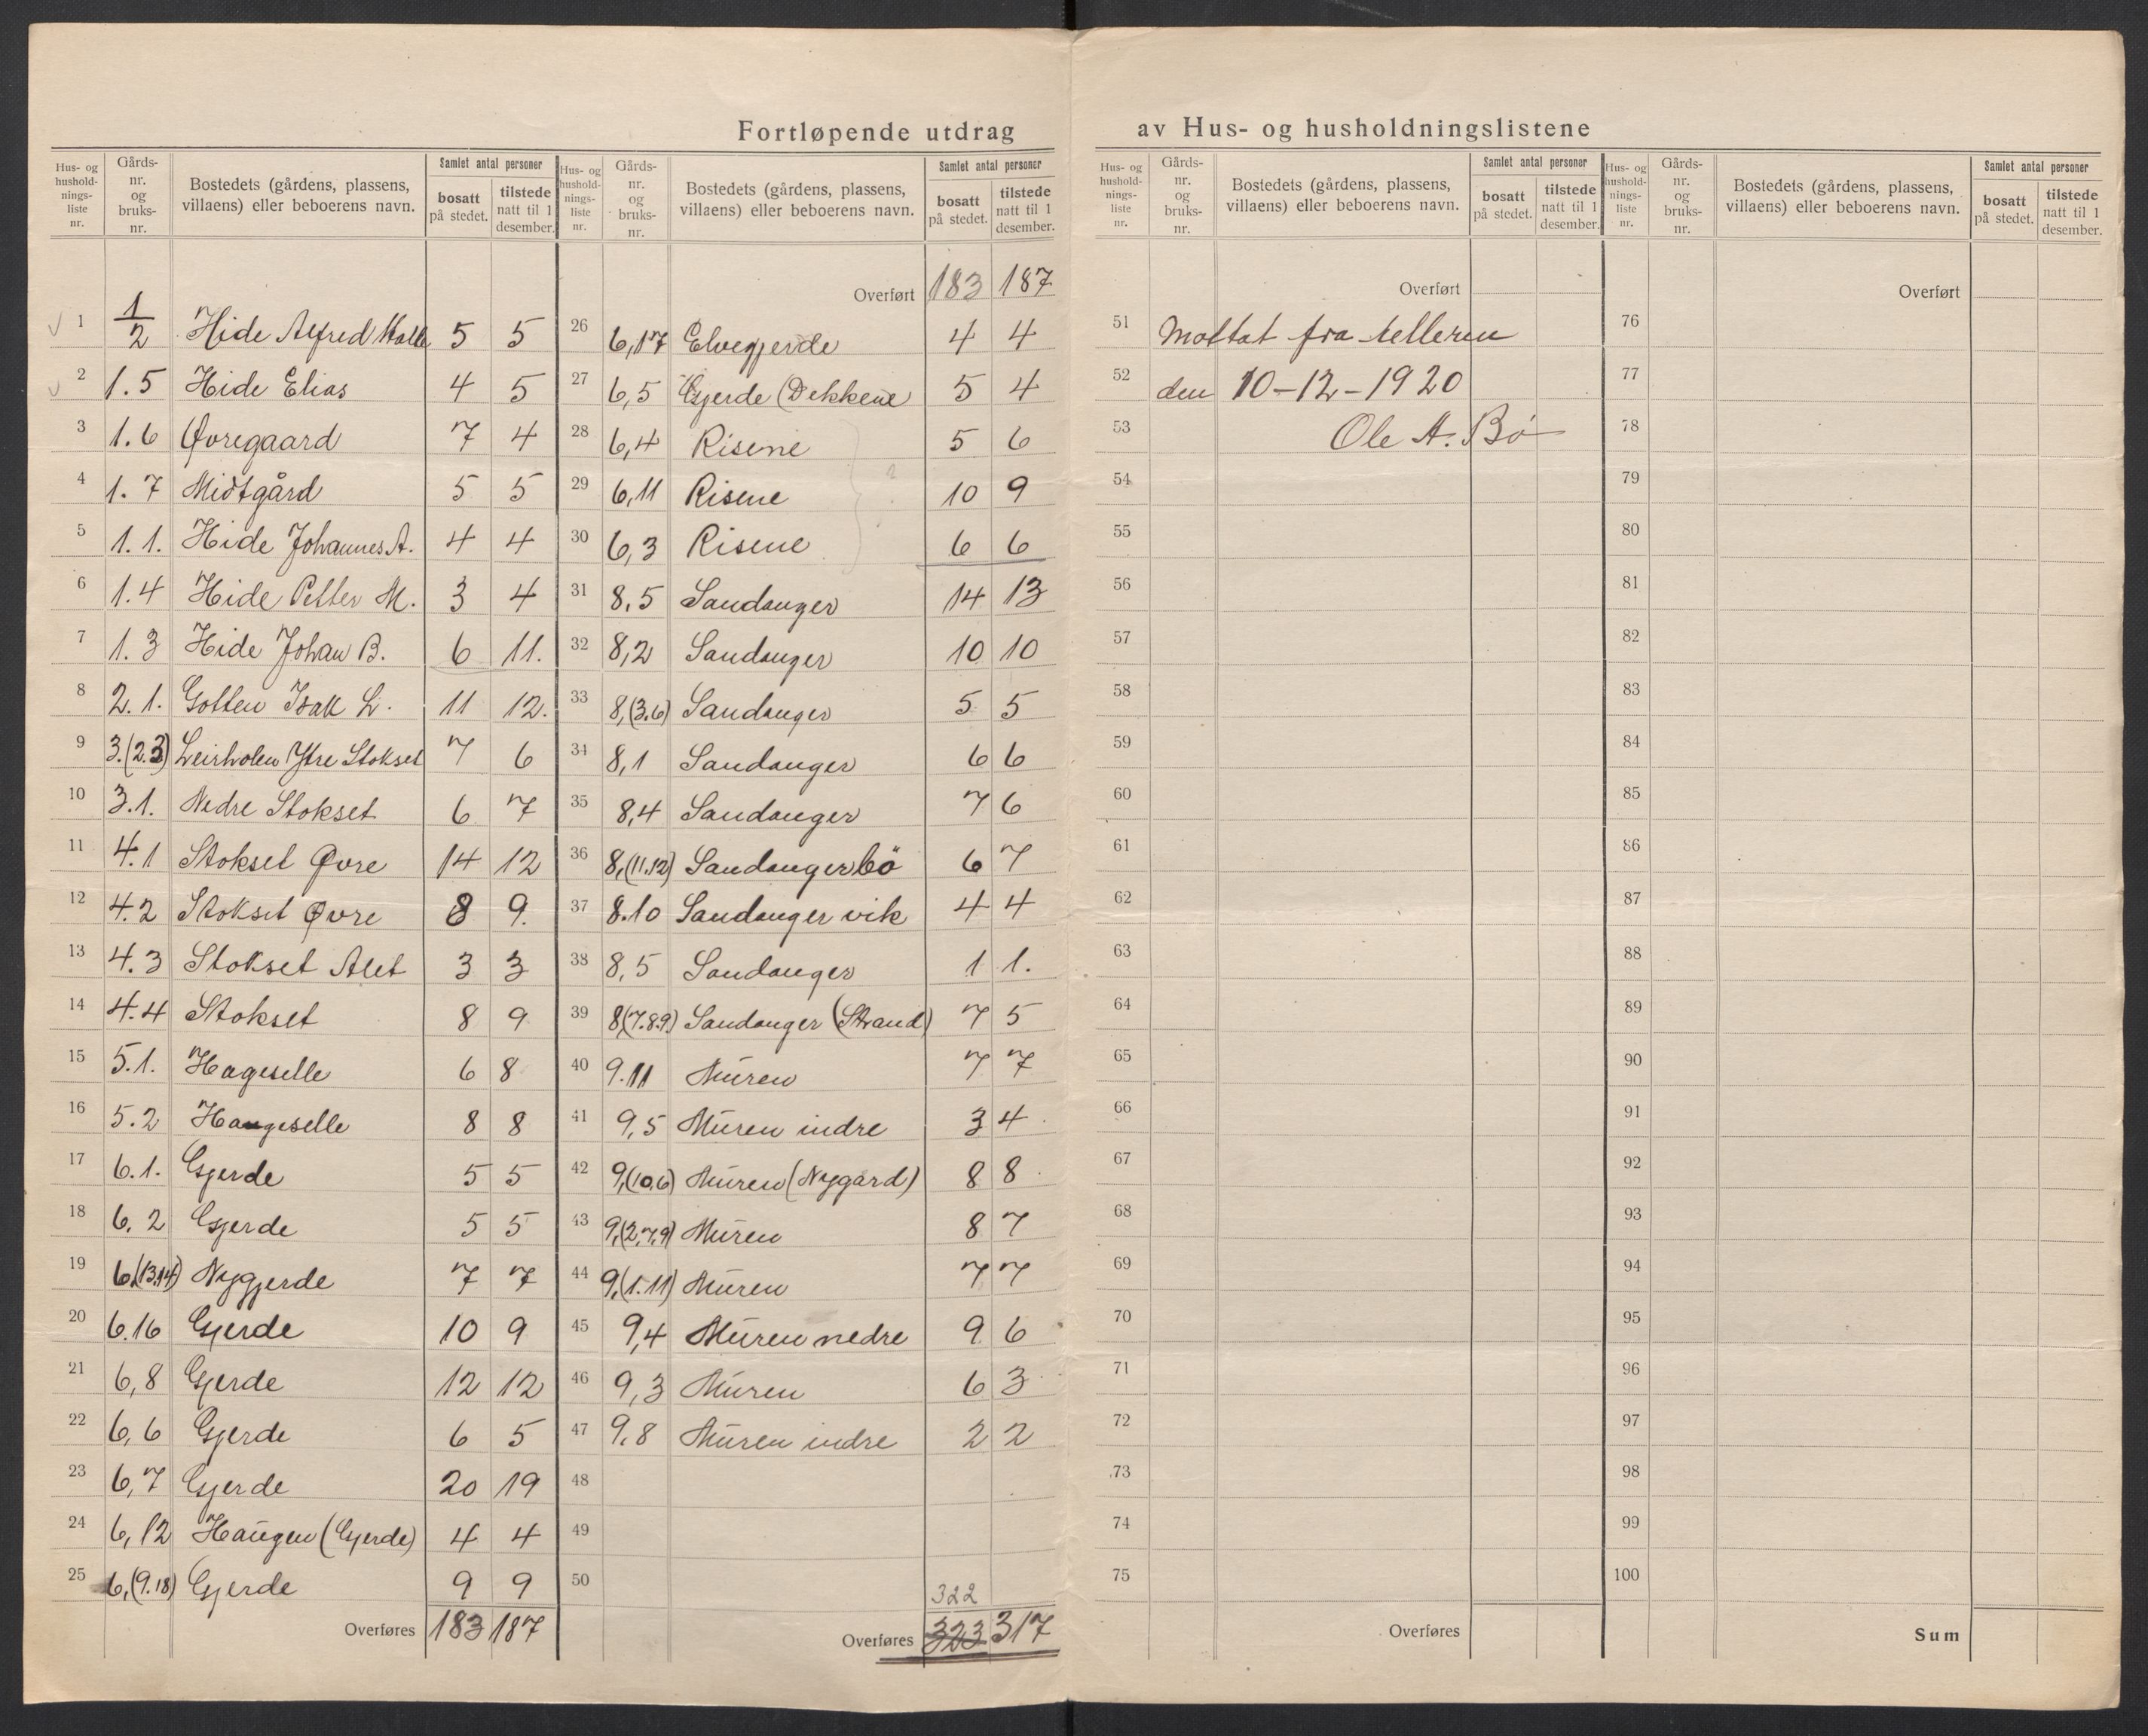 Fortløpende utdrag av Hus- og husholdningslistene
Hus- og husholdnings-liste nr. | Gårds-nr. og bruks-nr. | Bostedets (gårdens, plassens, villaens) eller beboerens navn. | Samlet antal personer | bosatt på stedet. | tilstede natt til 1 desember.
1 | 1/2 | Hide Alfred | 5 | 5
2 | 1.5 | Hide Elias | 4 | 5
3 | 1.6 | Øvregaard | 7 | 4
4 | 1.7 | Midtgård | 5 | 5
5 | 1.1. | Hide Johannes A. | 4 | 4
6 | 1.4 | Hide Petter M. | 3 | 4
7 | 1.3 | Hide Johan B. | 6 | 11.
8 | 2.1. | Gotten Isak L. | 11 | 12.
9 | 3.(2.3) | Leirholen Ytre Stokset | 7 | 6
10 | 3.1. | Nedre Stokset | 6 | 7
11 | 4.1 | Stokset Øvre | 14 | 12
12 | 4.2 | Stokset Øvre | 8 | 9.
13 | 4.3 | Stokset Alet | 3 | 3
14 | 4.4 | Stokset | 8 | 9
15 | 5.1. | Hageselle | 6 | 8
16 | 5.2 | Haugeselle | 8 | 8
17 | 6.1. | Gjerde | 5 | 5
18 | 6.2 | Gjerde | 5 | 5
19 | 6(13.14) | Nygjerde | 7 | 7
20 | 6.16 | Gjerde | 10 | 9
21 | 6,8 | Gjerde | 12 | 12
22 | 6,6 | Gjerde | 6 | 5
23 | 6,7 | Gjerde | 20 | 19
24 | 6,12 | Haugen (Gjerde) | 4 | 4
25 | 6,(9.18) | Gjerde | 9 | 9
Overføres | 183 | 187
Hus- og husholdnings-liste nr. | Gårds-nr. og bruks-nr. | Bostedets (gårdens, plassens, villaens) eller beboerens navn. | Samlet antal personer | bosatt på stedet. | tilstede natt til 1 desember.
Overført | 183 | 187
26 | 6,17 | Elvegjerde | 4 | 4
27 | 6,5 | Gjerde (Dekkene) | 5 | 4
28 | 6,4 | Risene | 5 | 6
29 | 6,11 | Risene | 10 | 9
30 | 6,3 | Risene | 6 | 6
31 | 8,5 | Sandanger | 14 | 13
32 | 8,2 | Sandanger | 10 | 10
33 | 8,(3.6) | Sandanger | 5 | 5
34 | 8,1 | Sandanger | 6 | 6
35 | 8,4 | Sandanger | 7 | 6
36 | 8,(11.12) | Sandangerbö | 6 | 7
37 | 8.10 | Sandanger vik | 4 | 4
38 | 8,5 | Sandanger | 1 | 1.
39 | 8(7.8.9.) | Sandanger (Strand) | 7 | 5
40 | 9.11 | Muren | 7 | 7
41 | 9,5 | Muren indre | 3 | 4
42 | 9,(10.6) | Muren (Nygård) | 8 | 8
43 | 9,(2.7.9) | Muren | 8 | 7
44 | 9,(1.11) | Muren | 7 | 7
45 | 9,4 | Muren nedre | 9 | 6
46 | 9,3 | Muren | 6 | 3
47 | 9.8 | Muren indre | 2 | 2
48
49
50
322
Overføres | 323 | 317
Hus- og husholdnings-liste nr. | Gårds-nr. og bruks-nr. | Bostedets (gårdens, plassens, villaens) eller beboerens navn. | Samlet antal personer | bosatt på stedet. | tilstede natt til 1 desember.
Overført
51 Mottat fra telleren
52 den 10-12-1920
53 Ole A. Bö
54
55
56
57
58
59
60
61
62
63
64
65
66
67
68
69
70
71
72
73
74
75
Overføres
Hus- og husholdnings-liste nr. | Gårds-nr. og bruks-nr. | Bostedets (gårdens, plassens, villaens) eller beboerens navn. | Samlet antal personer | bosatt på stedet. | tilstede natt til 1 desember.
Overført
76
77
78
79
80
81
82
83
84
85
86
87
88
89
90
91
92
93
94
95
96
97
98
99
100
Sum